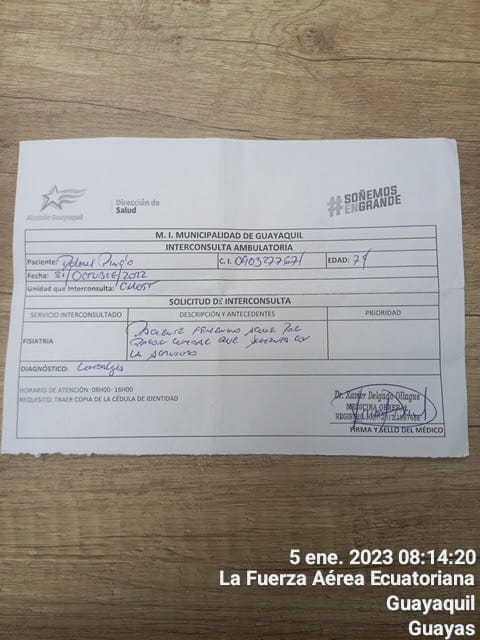 Alcaldía Guayaquil
Dirección de
Salud
#SOÑEMOS
ENGRANDE
M. I. MUNICIPALIDAD DE GUAYAQUIL
INTERCONSULTA AMBULATORIA
Paciente: Dolores C. I. EDAD: 71
Fecha: 31/OCTUBRE/2022
Unidad que Interconsulta:
SOLICITUD DE INTERCONSULTA
SERVICIO INTERCONSULTADO DESCRIPCIÓN Y ANTECEDENTES PRIORIDAD
FISIATRIA
PACIENTE FEMENINO ACUDE POR
DOLOR LUMBAR QUE
LA
DIAGNÓSTICO: Lumbalgia
HORARIO DE ATENCIÓN: 08H00- 16H00
REQUISITO: TRAER COPIA DE LA CÉDULA DE IDENTIDAD
Dr. Xavier Delgado Ollague
MEDICINA GENERAL
FIRMA Y SELLO DEL MÉDICO
5 ene. 2023 08:14:20
La Fuerza Aérea Ecuatoriana
Guayaquil
Guayas